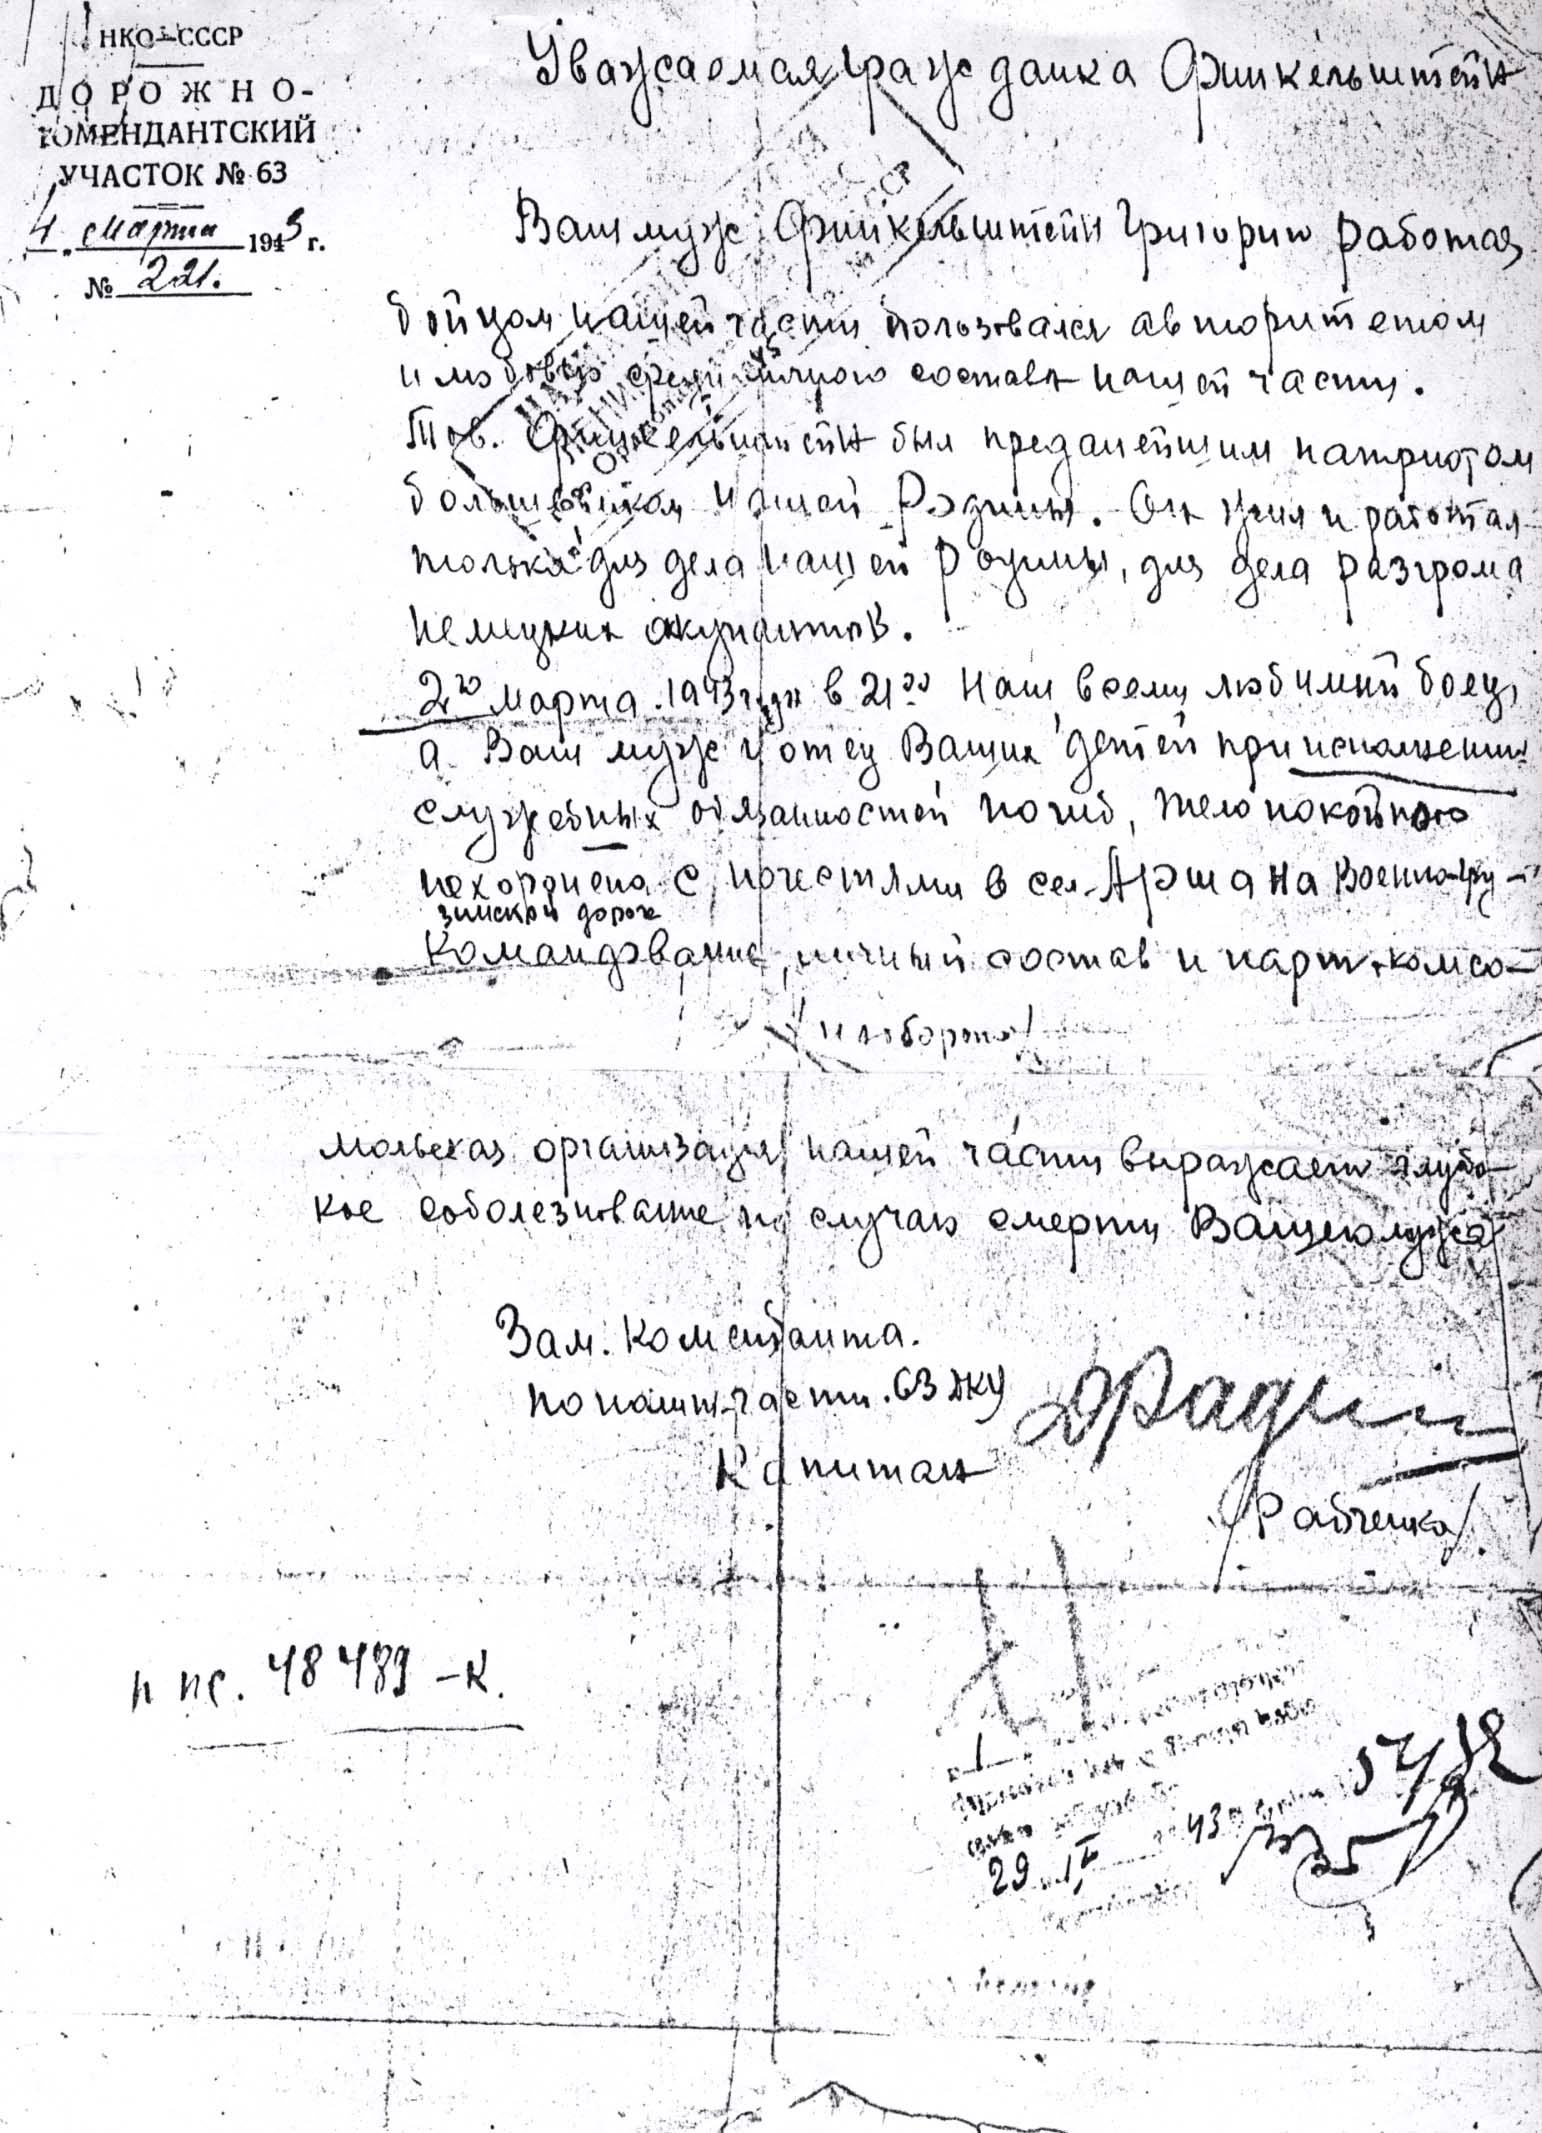 НКО–СССР
ДОРОЖНО-
КОМЕНДАНТСКИЙ
УЧАСТОК № 63
4. марта 1943 г.
№ 221.
Уважаемая гражданка Финкельштейн
Ваш муж Финкельштейн Григорий работая
бойцом нашей части пользовался авторитетом
и любовью среди личного состава нашей части.
Тов. Финкельштейн был преданейшим патриотом
большевиком нашей Родины. Он жил и работал
только для дела нашей Родины, для дела разгрома
немецких окупантов.
2го марта 1943 года в 21оо наш всеми любимый боец,
а Ваш муж и отец Ваших детей при исполнении
служебных обязанностей погиб, тело покойного
похоронено с почестями в сел. Арша на Военно-гру-
зинской дороге
Командование, личный состав и парт. комсо-
/на обороте/
мольская организация нашей части выражает глубо-
кое соболезнование по случаю смерти Вашего мужа
Зам. Коменданта.
по полит. части. 63 ДКУ
Капитан
/Рабченко/.
п пс. 48489-К.
29 IV 43